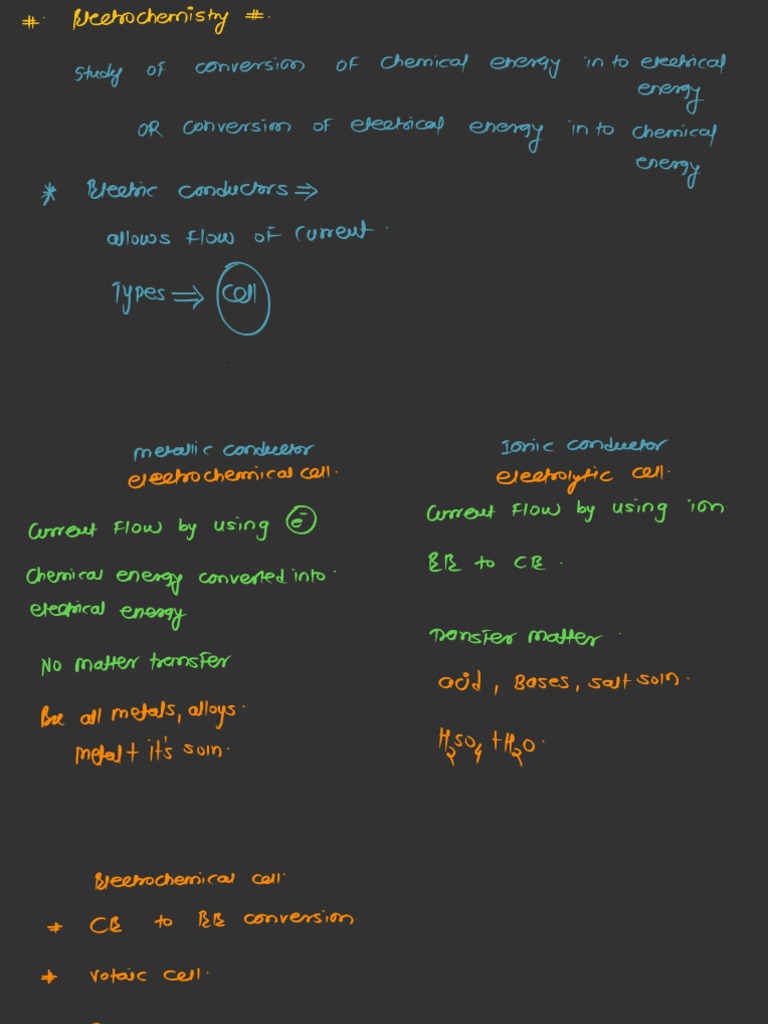 # Electrochemistry #.
Study of conversion of chemical energy in to electrical
energy
OR conversion of electrical energy in to chemical
energy
* Electric conductors ⇒
allows flow of current.
Types ⇒ Cell
metallic conductor
electrochemical cell.
Current flow by using e⁻
Chemical energy converted into
electrical energy
No matter transfer
Ex all metals, alloys.
metal + it's soln.
Ionic conductor
electrolytic cell.
Current flow by using ion
EE to CE.
Transfer matter.
acid, Bases, salt soln.
H₂SO₄ + H₂O.
Electrochemical cell.
* CE to EE conversion
* Votaic cell.